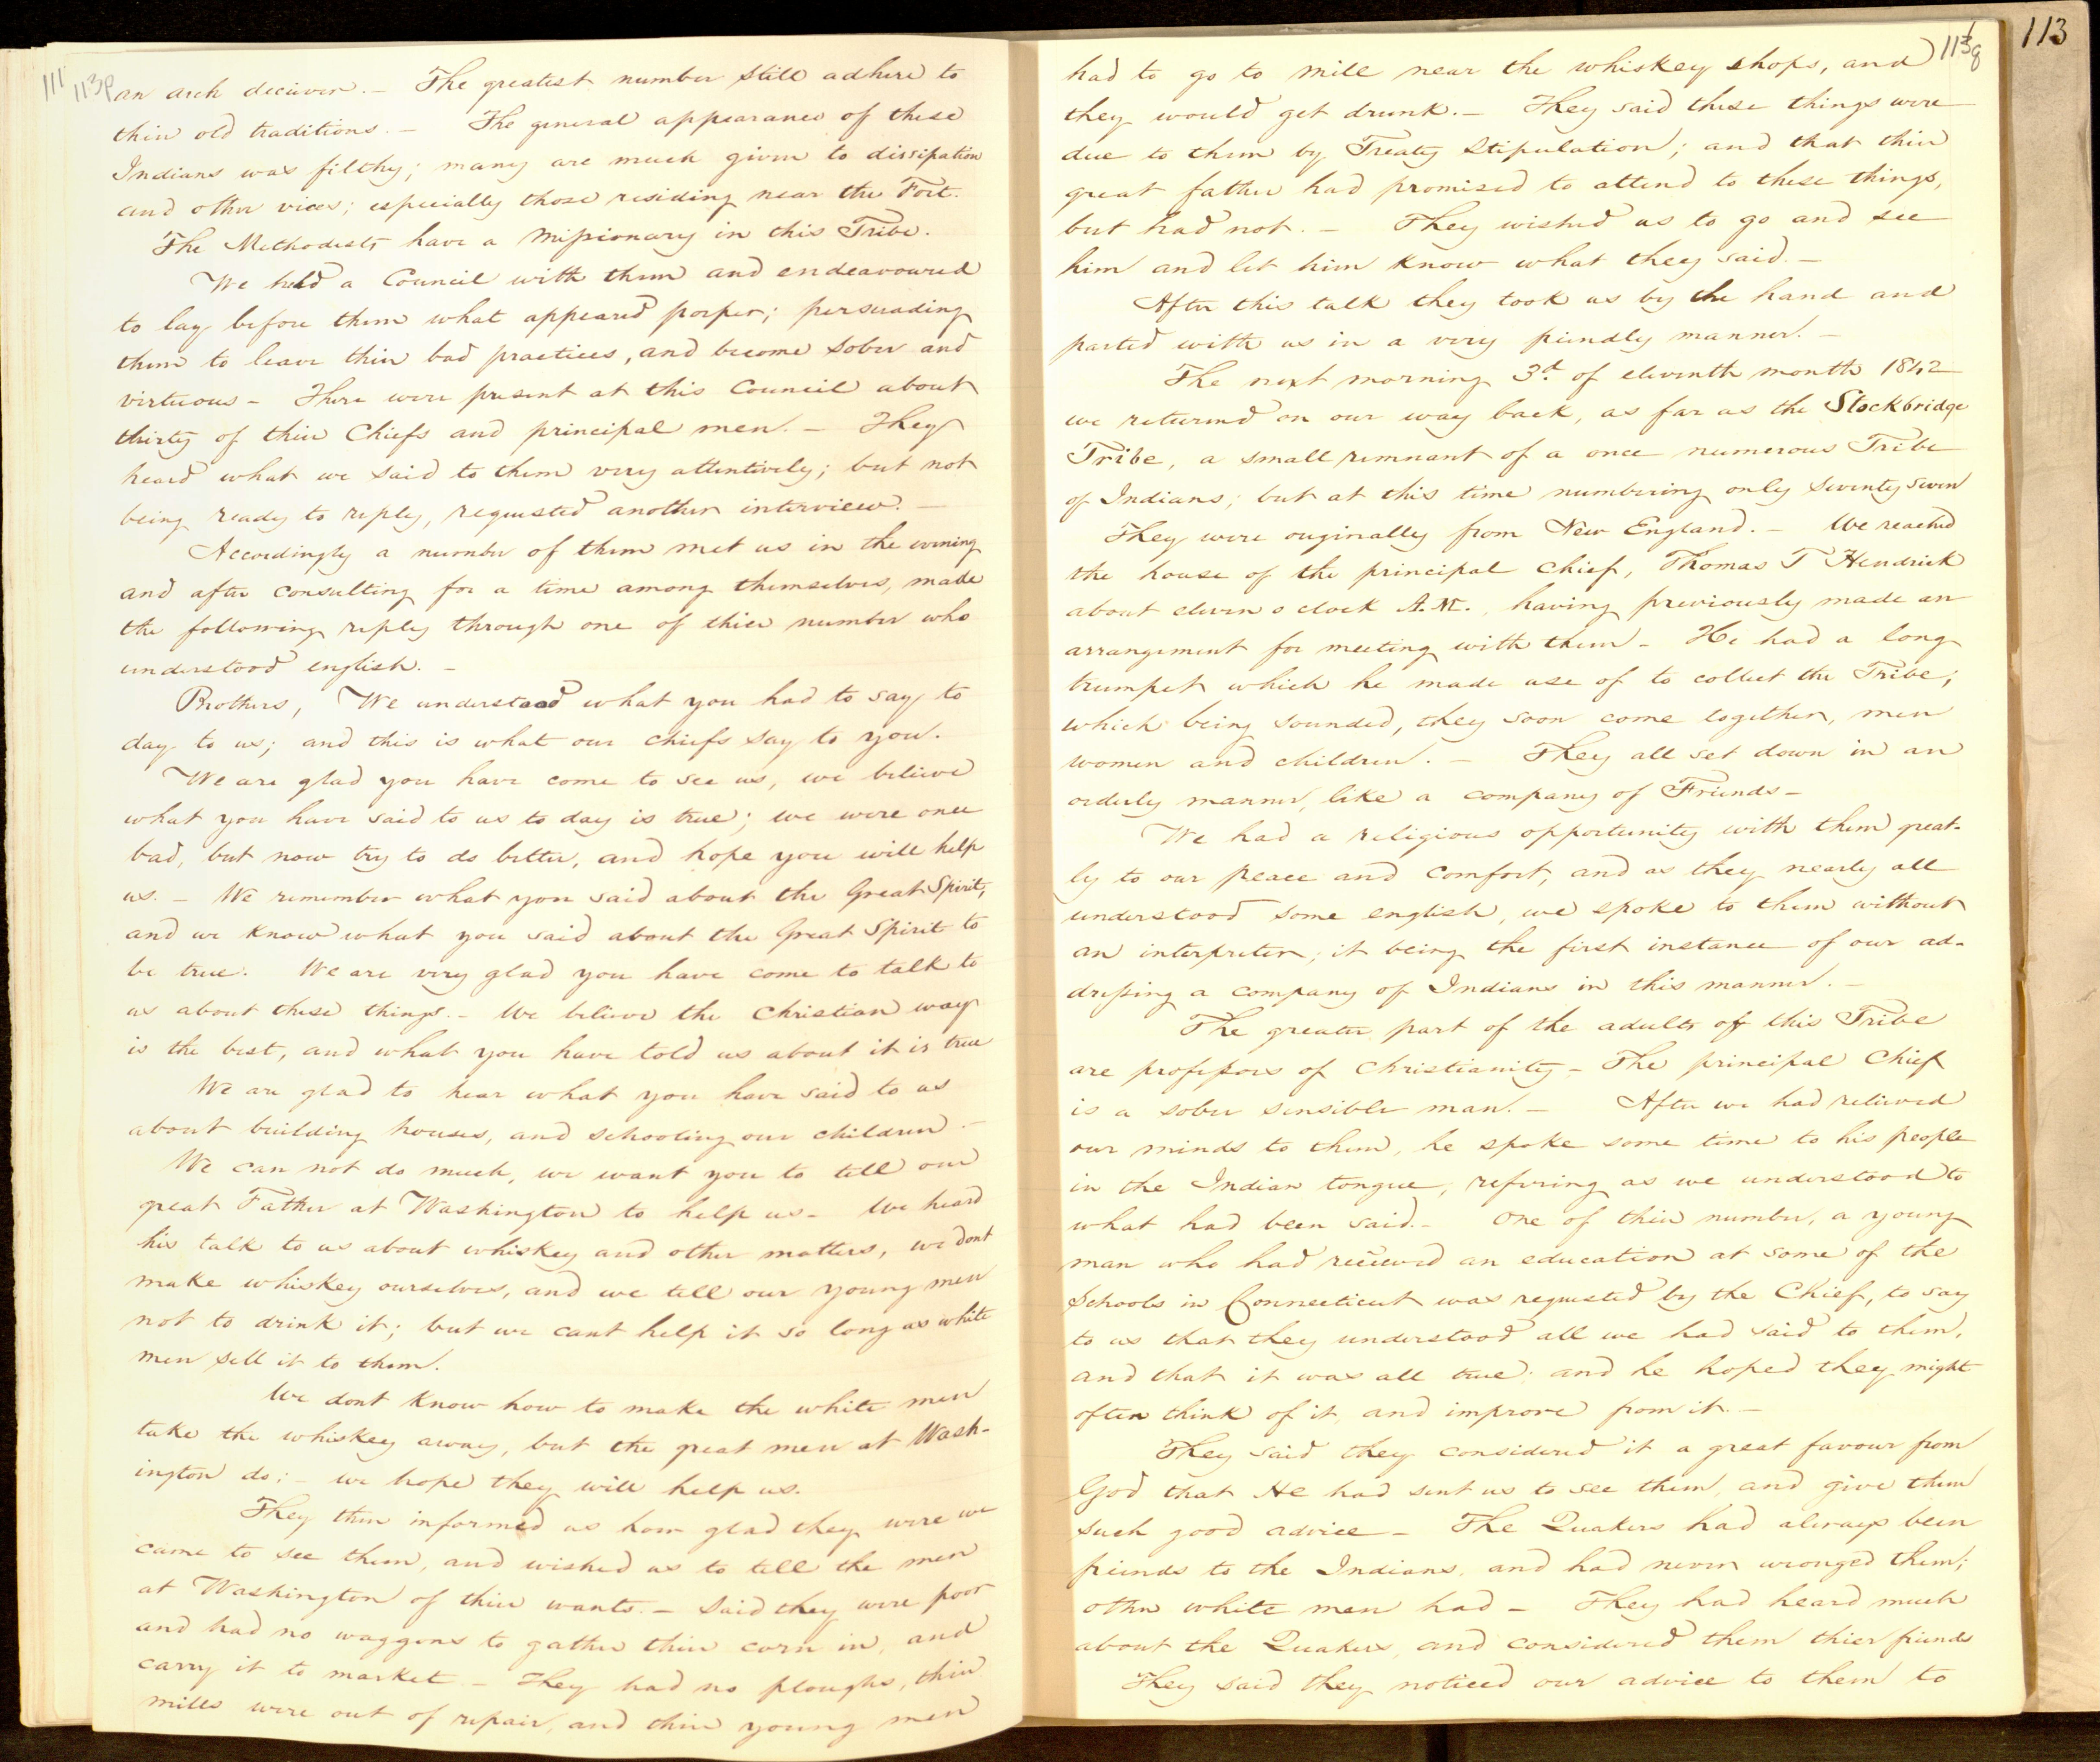 111 113p
an arch deciever. - The greatest number still adhere to
thier old traditions. - The general appearance of these
Indians was filthy; many are much given to dissipation
and other vices; especially those residing near the Fort.
The Methodists have a Missionary in this Tribe.
We held a Council with them and endeavoured
to lay before them what appeared proper; persuading
them to leave thier bad practices, and become sober and
virtuous - There were present at this Council about
thirty of thier Chiefs and principal men. - They
heard what we said to them very attentively; but not
being ready to reply, requested another interview. -
Accordingly a number of them met us in the evening
and after consulting for a time among themselves, made
the following reply through one of thier number who
understood english. -
Brothers, We understood what you had to say to
day to us; and this is what our chiefs say to you.
We are glad you have come to see us, we believe
what you have said to us to day is true; we were once
bad, but now try to do better, and hope you will help
us. - We remember what you said about the Great Spirit,
and we know what you said about the Great Spirit to
be true. We are very glad you have come to talk to
us about these things. - We believe the Christian way
is the best, and what you have told us about it is true
We are glad to hear what you have said to us
about building houses, and schooling our children. -
We can not do much, we want you to tell our
great Father at Washington to help us - We heard
his talk to us about whiskey and other matters, we dont
make whiskey ourselves, and we tell our young men
not to drink it; but we cant help it so long as white
men sell it to them.
We dont know how to make the white men
take the whiskey away, but the great men at Wash-
ington do; - we hope they will help us.
They then informed us how glad they were we
came to see them, and wished us to tell the men
at Washington of thier wants. - Said they were poor
and had no waggons to gather thier corn in, and
carry it to market - They had no ploughs, thier
mills were out of repair, and thier young men
113q
113
had to go to mill near the whiskey shops, and
they would get drunk. - They said these things were
due to them by Treaty Stipulation; and that thier
great father had promised to attend to these things,
but had not. - They wished us to go and see
him and let him know what they said. -
After this talk they took us by the hand and
parted with us in a very friendly manner. -
The next morning 3d. of eleventh month 1842
we returned on our way back, as far as the Stockbridge
Tribe, a small remnant of a once numerous Tribe
of Indians; but at this time numbering only seventy seven
They were originally from New England. - We reached
the house of the principal chief, Thomas T Hendrick
about eleven o clock A.M., having previously made an
arrangement for meeting with them - He had a long
trumpet which he made use of to collect the Tribe;
which being sounded, they soon come together, men
women and children. - They all set down in an
orderly manner, like a company of Friends -
We had a religious opportunity with them great-
ly to our peace and comfort, and as they nearly all
understood some english, we spoke to them without
an interpreter; it being the first instance of our ad-
dressing a company of Indians in this manner. -
The greater part of the adults of this Tribe
are professors of Christianity - The principal Chief
is a sober sensible man. - After we had relieved
our minds to them, he spoke some time to his people
in the Indian tongue, refering as we understood to
what had been said. - One of thier number, a young
man who had recieved an education at some of the
Schools in Connecticut was requested by the Chief, to say
to us that they understood all we had said to them,
and that it was all true; and he hoped they might
often think of it, and improve from it. -
They said they considered it a great favour from
God that He had sent us to see them, and give them
such good advice - The Quakers had always been
friends to the Indians, and had never wronged them;
other white men had - They had heard much
about the Quakers, and considered them thier friends
They said they noticed our advice to them to